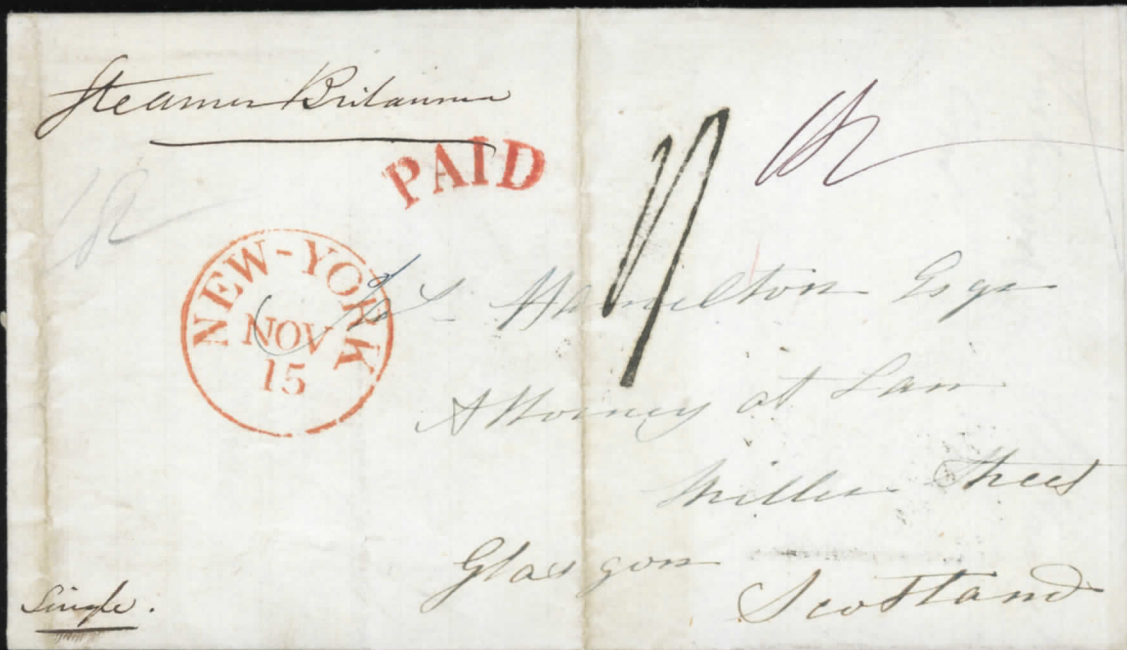 Steamer Britannia
PAID
NEW-YORK
NOV
15
Hamilton Esqr
Attorney at Law
Miller Street
Glasgow
Scotland
Single.